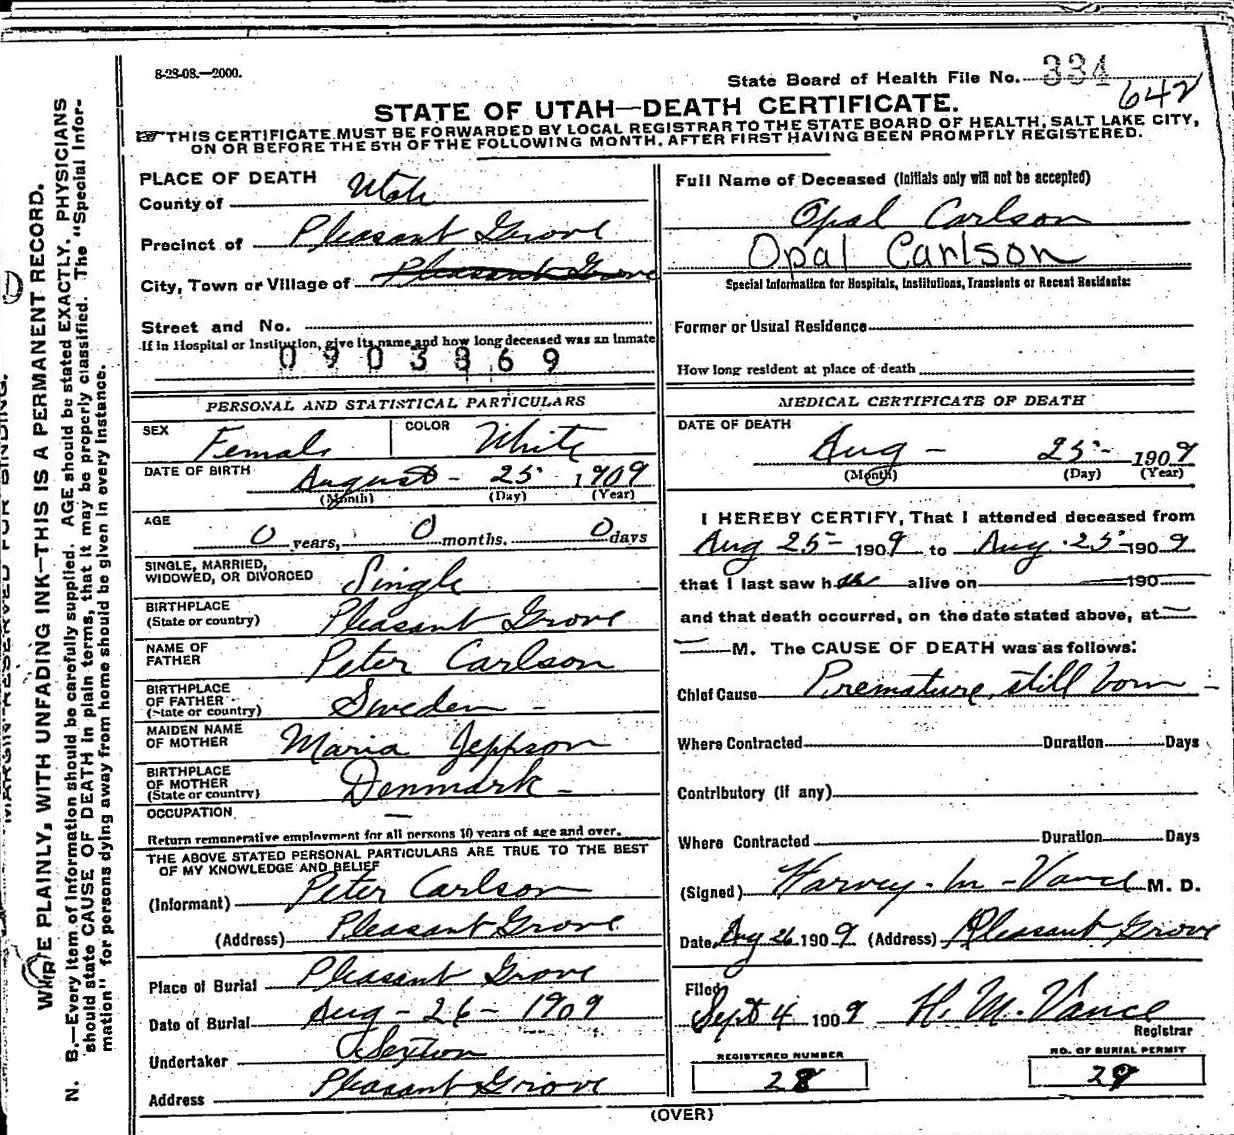 8-23-08.—2000.
State Board of Health File No. 334
642
STATE OF UTAH—DEATH CERTIFICATE.
THIS CERTIFICATE MUST BE FORWARDED BY LOCAL REGISTRAR TO THE STATE BOARD OF HEALTH, SALT LAKE CITY,
ON OR BEFORE THE 5TH OF THE FOLLOWING MONTH, AFTER FIRST HAVING BEEN PROMPTLY REGISTERED.
PLACE OF DEATH
County of Utah
Precinct of Pleasant Grove
City, Town or Village of Pleasant Grove
Street and No.
If in Hospital or Institution, give its name and how long deceased was an inmate
0903869
PERSONAL AND STATISTICAL PARTICULARS
SEX Female COLOR White
DATE OF BIRTH August - 25 1909
(Month) (Day) (Year)
AGE 0 years, 0 months. 0 days
SINGLE, MARRIED,
WIDOWED, OR DIVORCED Single
BIRTHPLACE
(State or country) Pleasant Grove
NAME OF
FATHER Peter Carlson
BIRTHPLACE
OF FATHER
(State or country) Sweden -
MAIDEN NAME
OF MOTHER Maria Jeppson
BIRTHPLACE
OF MOTHER
(State or country) Denmark -
OCCUPATION —
Return remunerative employment for all persons 10 years of age and over.
THE ABOVE STATED PERSONAL PARTICULARS ARE TRUE TO THE BEST
OF MY KNOWLEDGE AND BELIEF
(Informant) Peter Carlson
(Address) Pleasant Grove
Place of Burial Pleasant Grove
Date of Burial Aug - 26 - 1909
Undertaker Sexton
Address Pleasant Grove
Full Name of Deceased (Initials only will not be accepted)
Opal Carlson
Opal Carlson
Special Information for Hospitals, Institutions, Transients or Recent Residents:
Former or Usual Residence
How long resident at place of death
MEDICAL CERTIFICATE OF DEATH
DATE OF DEATH
Aug - 25 - 1909
(Month) (Day) (Year)
I HEREBY CERTIFY, That I attended deceased from
Aug 25 - 1909 to Aug. 25 - 1909
that I last saw h alive on 190
and that death occurred, on the date stated above, at
M. The CAUSE OF DEATH was as follows:
Chief Cause Premature, still born -
Where Contracted Duration Days
Contributory (if any)
Where Contracted Duration Days
(Signed) Harvey. M - Vance M. D.
Date, Aug 26 1909 (Address) Pleasant Grove
Filed
Sept 4 1909 H. M. Vance
Registrar
REGISTERED NUMBER
28
NO. OF BURIAL PERMIT
29
(OVER)
MARGIN RESERVED FOR BINDING.
WRITE PLAINLY, WITH UNFADING INK—THIS IS A PERMANENT RECORD.
N. B.—Every item of information should be carefully supplied. AGE should be stated EXACTLY. PHYSICIANS
should state CAUSE OF DEATH in plain terms, that it may be properly classified. The "Special Infor-
mation" for persons dying away from home should be given in every instance.